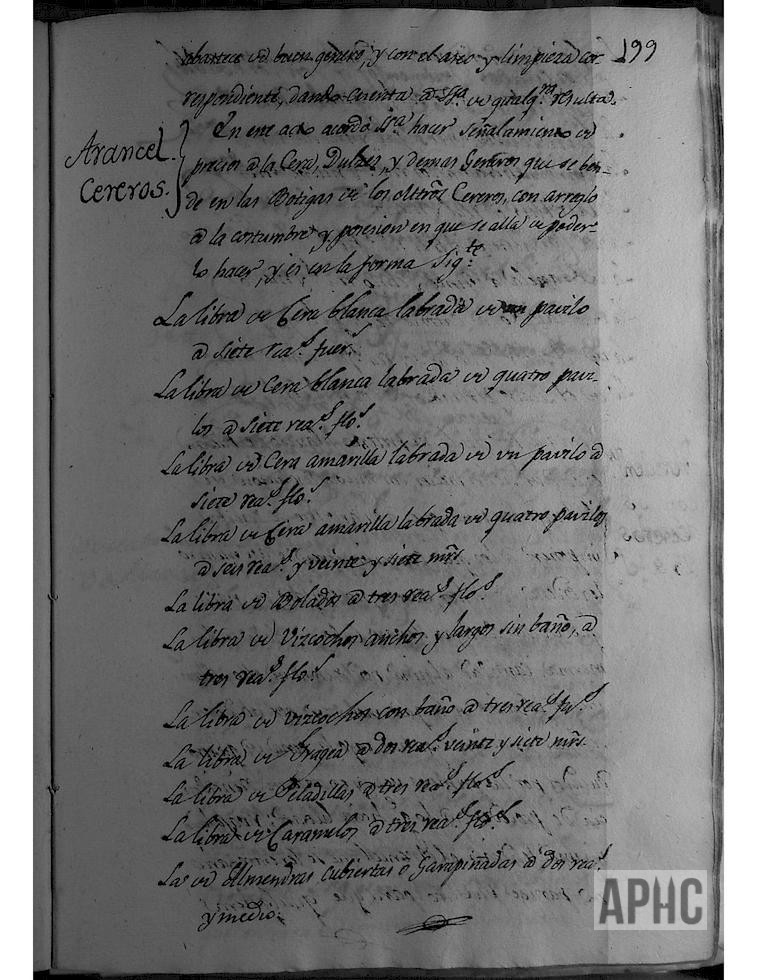 199
abastece de buen genero, y con el aseo y limpieza cor-
respondiente, dando cuenta a Ssª. de qualqª. resulta.
Arancel.
Cereros.
En este acto acordó Ssª. hacer señalamiento de
precios a la Cera, Dulzes, y demas Generos que se ben-
de en las Botigas de los Mtrõs Cereros, con arreglo
a la costumbre, y posesion en que se alla de poder-
lo hacer, y és en la forma Sigte.
La libra de Cera blanca labrada de un pavilo
a siete reas. fuers.
La libra de Cera blanca labrada de quatro pavi-
los a siete reas. flos.
La libra de Cera amarilla labrada de un pavilo a
siete reas. flos.
La libra de Cera amarilla labrada de quatro pavilos
a seis reas. y veinte y siete mrs.
La libra de Bolados a tres reas. flos.
La libra de Vizcochos anchos y largos sin baño, a
tres reas. flos.
La libra de vizcochos con baño a tres reas. fus.
La libra de Dragea a dos reas. veinte y siete mrs.
La libra de Peladillas a tres reas. flos.
La libra de Caramelos a tres reas. flos.
La de Almendras cubiertas o Garapiñadas a dos reas.
y medio.
APHC